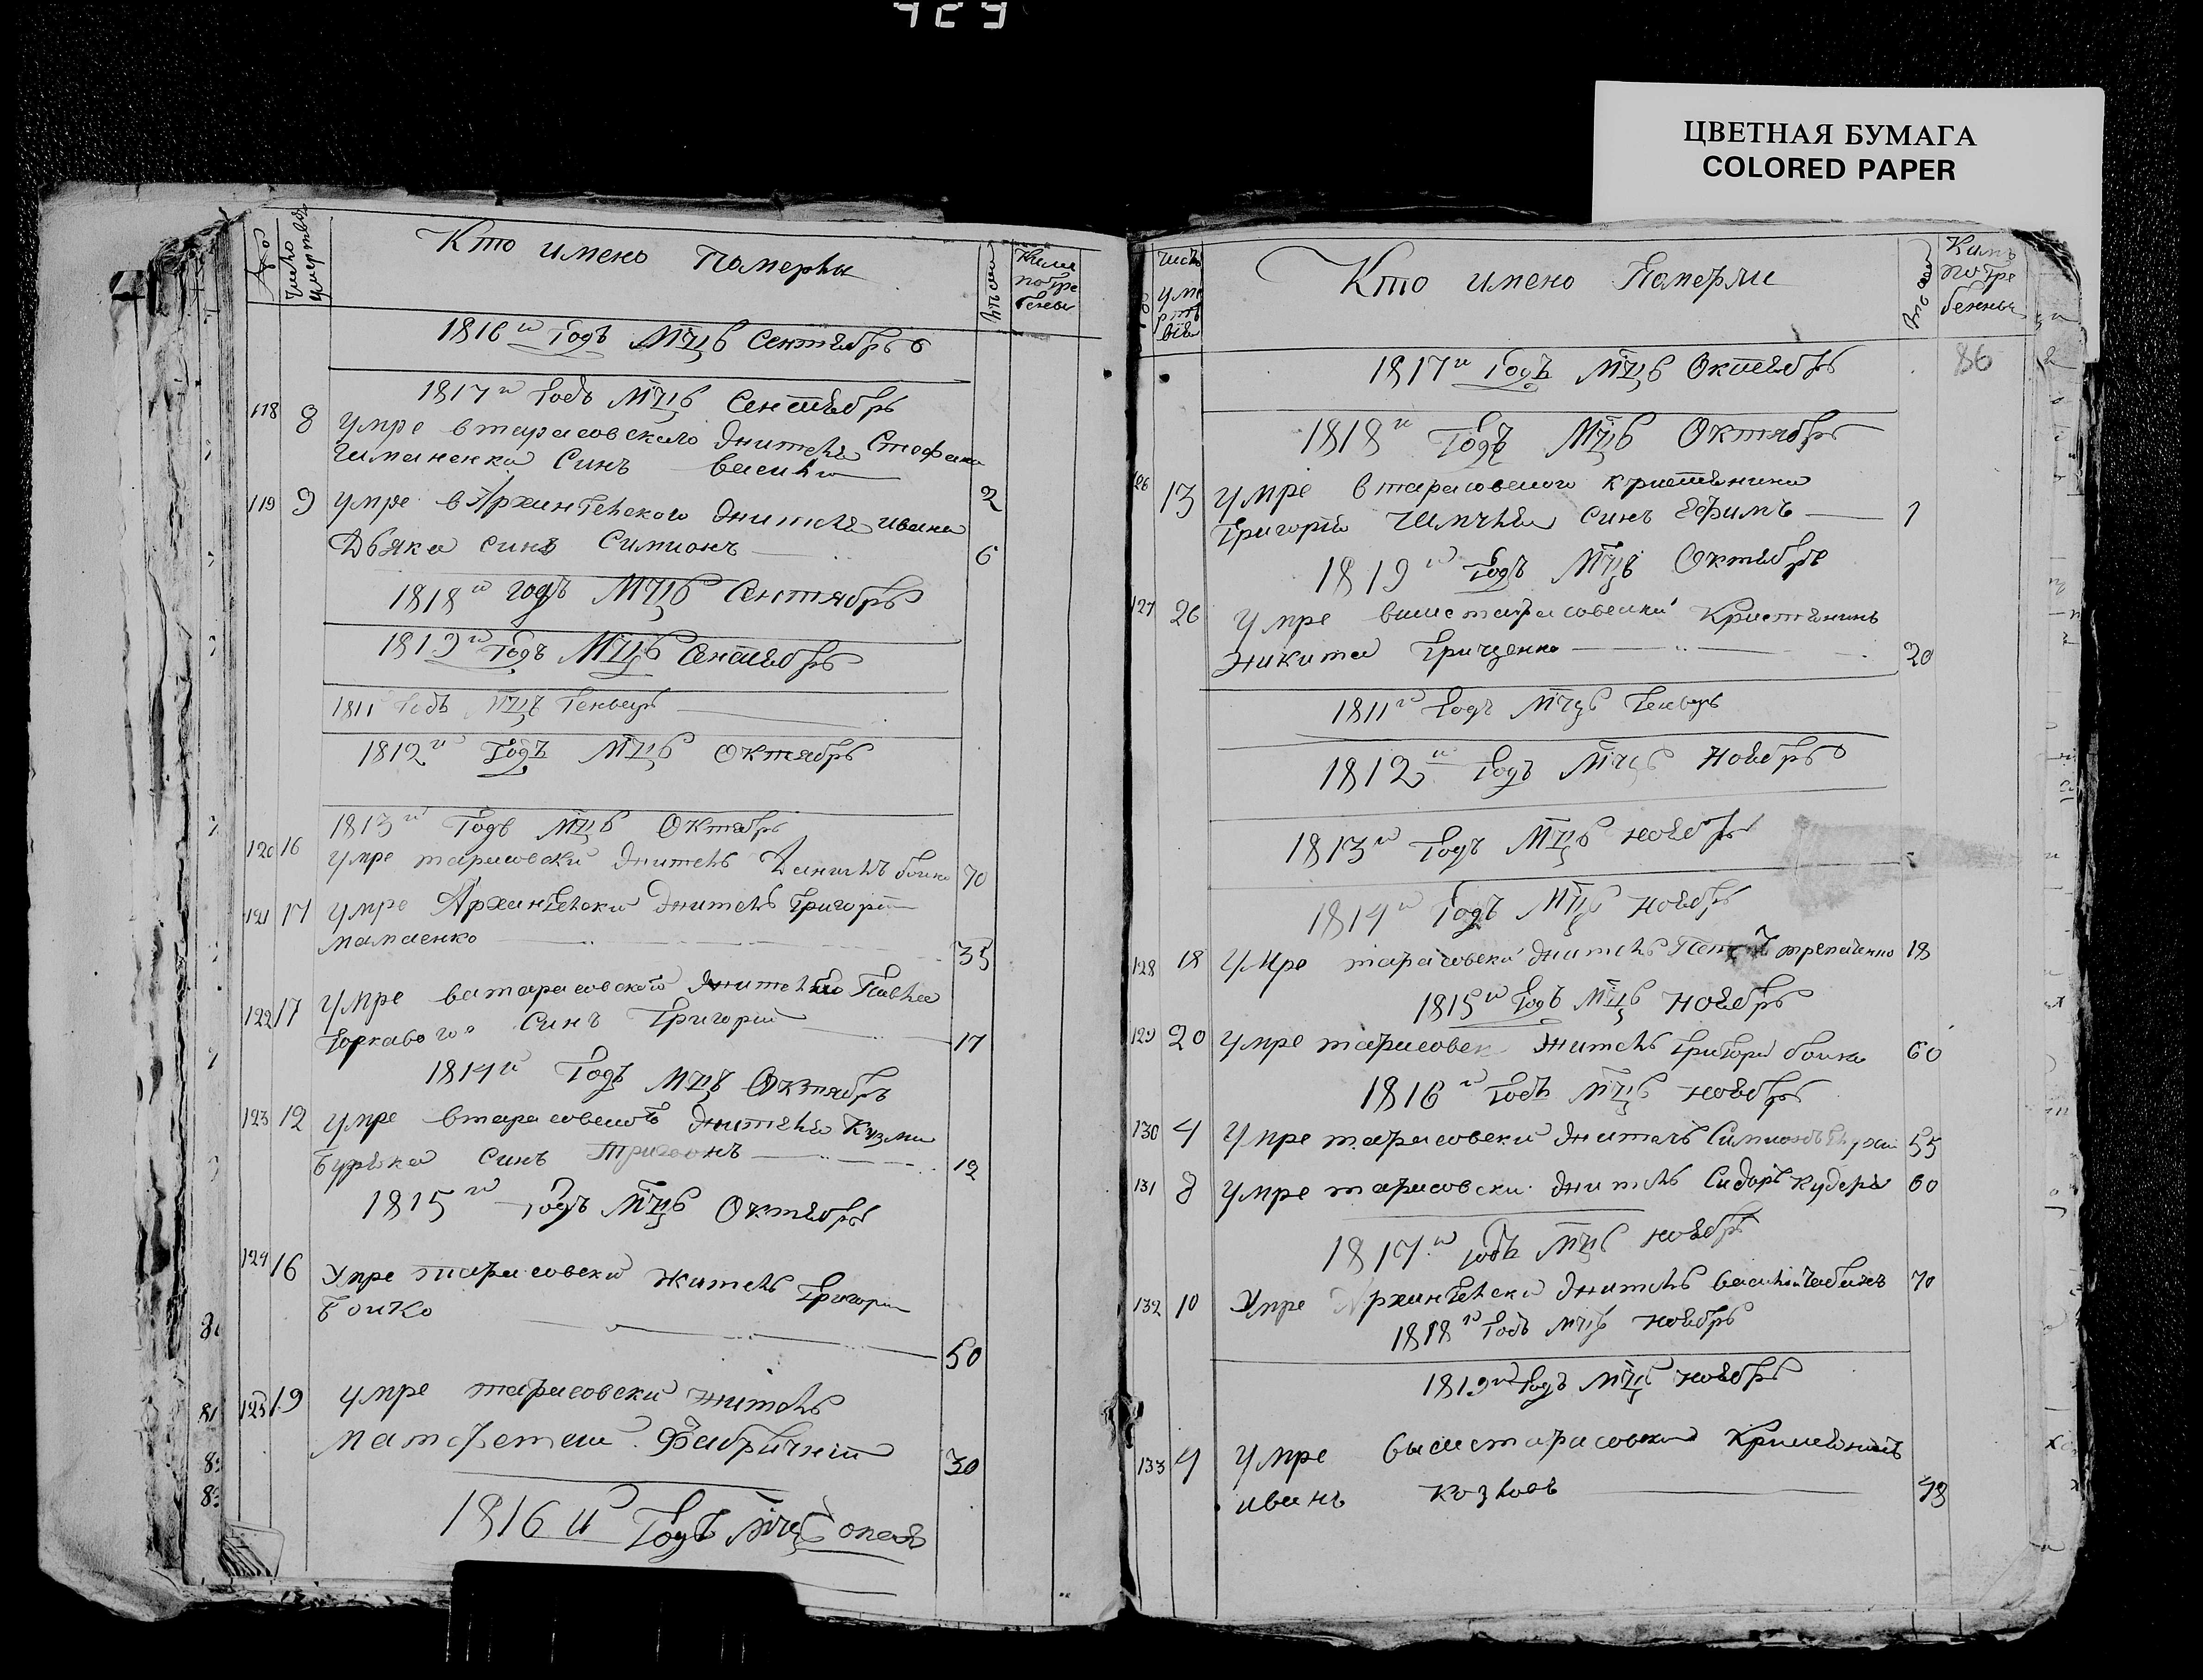 ЦВЕТНАЯ БУМАГА
COLORED PAPER
число умертвія
Кто имено Памерли
Ким погребены
1816 и Годъ Мцъ Сентябрь
1817 и Годъ Мцъ Сентябрь
118 8 умре втарасовского жителя Стефана
синъ васили 2
119 9 умре в Архангелского жителя ивана
Дбяка синъ Симионъ 6
1818 и годъ Мцъ Сентябрь
1819 и Годъ Мцъ Сентябрь
1811 Годъ Мцъ Генварь
1812 и Годъ Мцъ Октябрь
1813 и Годъ Мцъ Октябрь
120 16 умре тарасовски житель Данилъ боико 70
121 17 умре Архангелски житель Григорій
мамаенко 35
122 17 умре ватарасовского жителя Павла
Горкавого Синъ Григорій 17
1814 и Годъ Мцъ Октябрь
123 12 умре втарасовского жителя Кузми
Буряка синъ 12
1815 и Годъ Мцъ Октябрь
124 16 Умре тарасовски житель Григори
Боико 50
125 19 умре тарасовски житель
Фабричній 30
1816 и Годъ мцъ
Кто имено Памерли
Кимъ погребенны
86
1817 и Годъ Мцъ Октябрь
1818 и Годъ Мцъ Октябрь
126 13 умре втарасовского кристянина
Григорій синъ Ефимъ 1
1819 и Годъ Мцъ Октябрь
127 26 умре вишетарасовский Кристянинъ
Никита Гриценко 20
1811 и Годъ Мцъ Генварь
1812 и Годъ Мцъ Ноябрь
1813 и Годъ Мцъ ноябрь
1814 и Годъ Мцъ ноябрь
128 18 Умре тарасовски житель 18
1815 и Годъ Мцъ Ноябрь
129 20 умре тарасовск житель Григори боико 60
1816 и Годъ Мцъ ноябрь
130 4 Умре тарасовски житель Симионъ 55
131 8 умре тарасовски житель Сидоръ кудеря 60
1817 и годъ Мцъ ноябрь
132 10 Умре Архангелски житель васили 70
1818 и Годъ Мцъ ноябрь
1819 и Годъ Мцъ ноябрь
133 4 Умре вышетарасовски Кристянинъ
иванъ козловъ 48